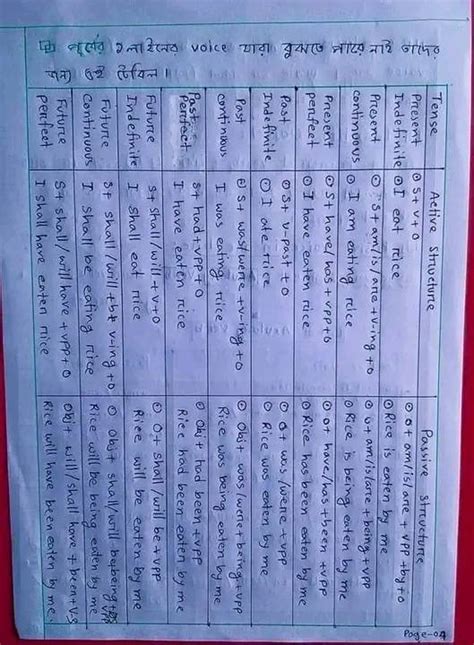 পূর্বের ১লাইনের voice যারা বুঝতে পারে নাই তাদের
জন্য এই টেবিল।
Tense Active Structure Passive Structure
Present ⊙ S+v+o ⊙ o+am/is/are+vpp+by+o
Indefinite ⊙ I eat rice ⊙ Rice is eaten by me
Present ⊙ S+am/is/are+v-ing+o ⊙ o+am/is/are+being+vpp
continuous ⊙ I am eating rice ⊙ Rice is being eaten by me
Present ⊙ S+have/has+vpp+o ⊙ o+have/has+been+vpp
perfect ⊙ I have eaten rice ⊙ Rice has been eaten by me
Past ⊙ S+v-past+o ⊙ o+was/were+vpp
Indefinite ⊙ I ate rice ⊙ Rice was eaten by me
Past ⊙ S+was/were+v-ing+o ⊙ Obj+was/were+being+vpp
continous I was eating rice Rice was being eaten by me
Past S+had+vpp+o ⊙ Obj+had been+vpp
Perfect I have eaten rice Rice had been eaten by me
Future S+shall/will+v+o ⊙ O+shall/will be+vpp
Indefinite I shall eat rice Rice will be eaten by me
Future S+shall/will+be+v-ing+o ⊙ Obj+shall/will be+being+vpp
Continuous I shall be eating rice Rice will be being eaten by me
Future S+shall/will have+vpp+o Obj+will/shall have+been+v-3
perfect I shall have eaten rice Rice will have been eaten by me.
Page-04